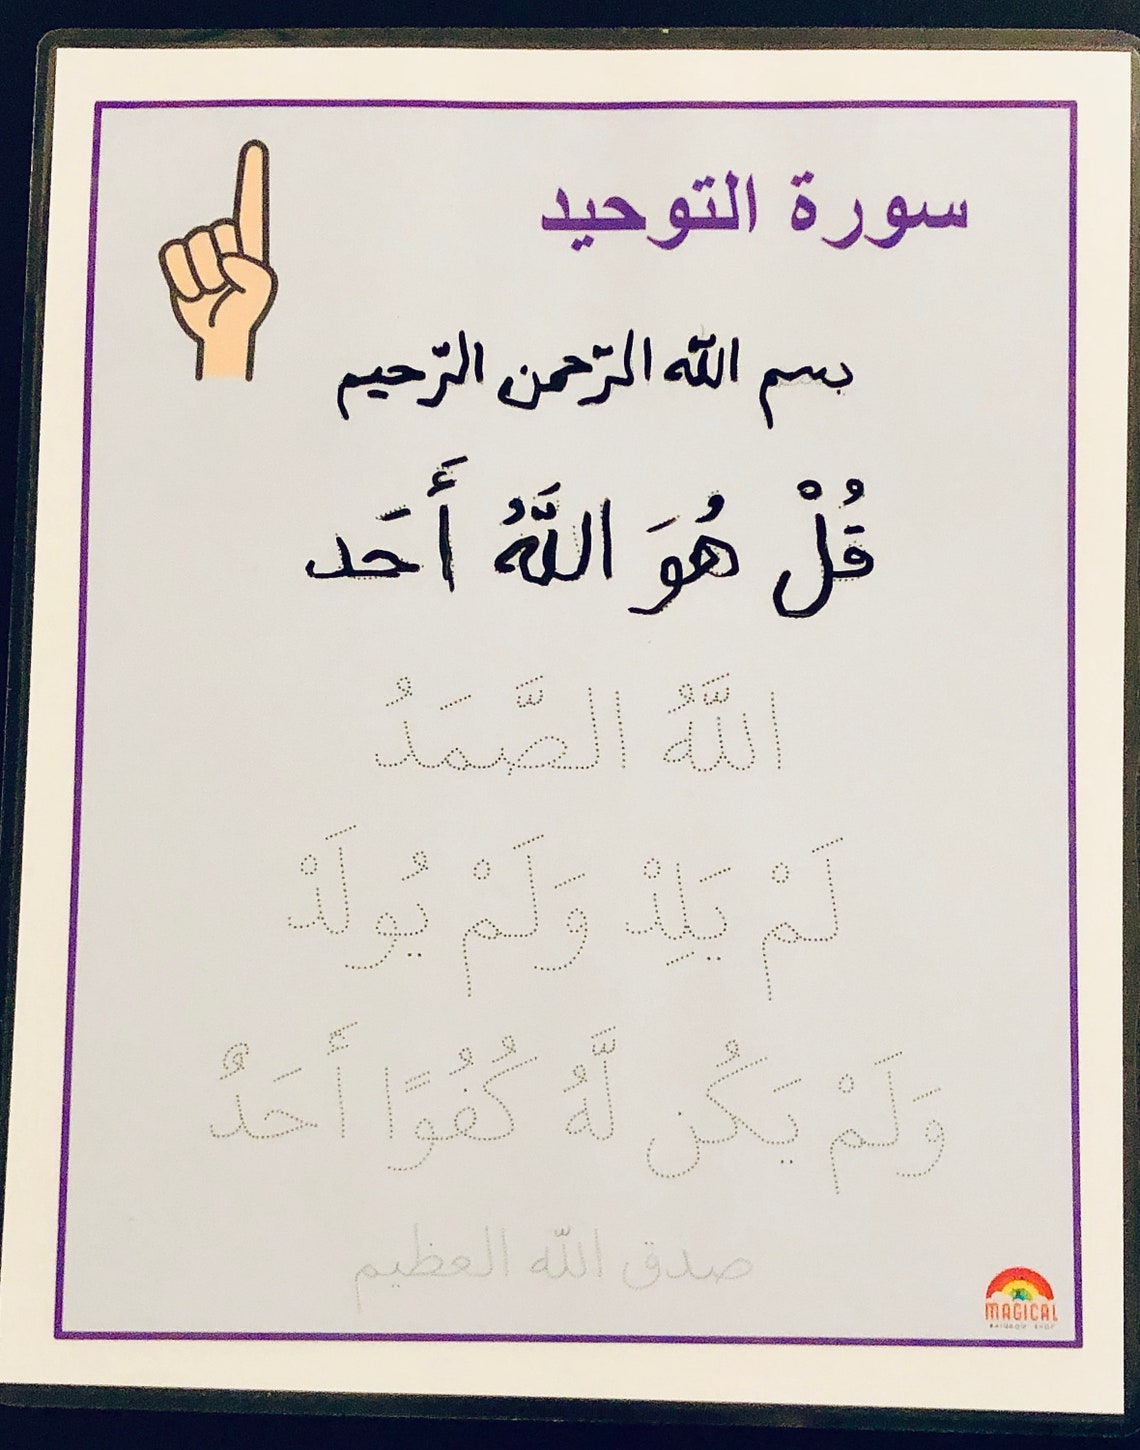 سورة التوحيد
بسم الله الرّحمن الرّحيم
قُلْ هُوَ اللَّهُ أَحَد
اللَّهُ الصَّمَدُ
لَمْ يَلِدْ وَلَمْ يُولَدْ
وَلَمْ يَكُن لَّهُ كُفُوًا أَحَدٌ
صدق اللّه العظيم
MAGICAL
RAINBOW SHOP